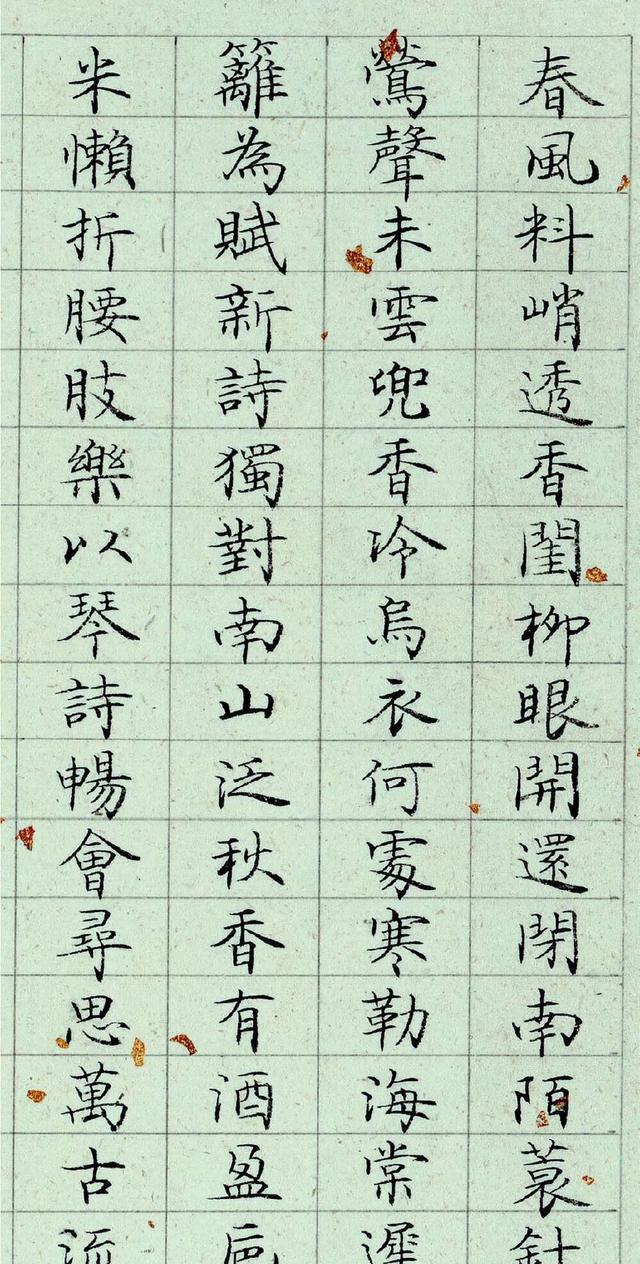 春風料峭透香閨柳眼開還閉南陌蓑針
鶯聲未雲兜香冷烏衣何處寒勒海棠遲
籬為賦新詩獨對南山泛秋香有酒盈卮
米懶折腰肢樂以琴詩暢會尋思萬古流